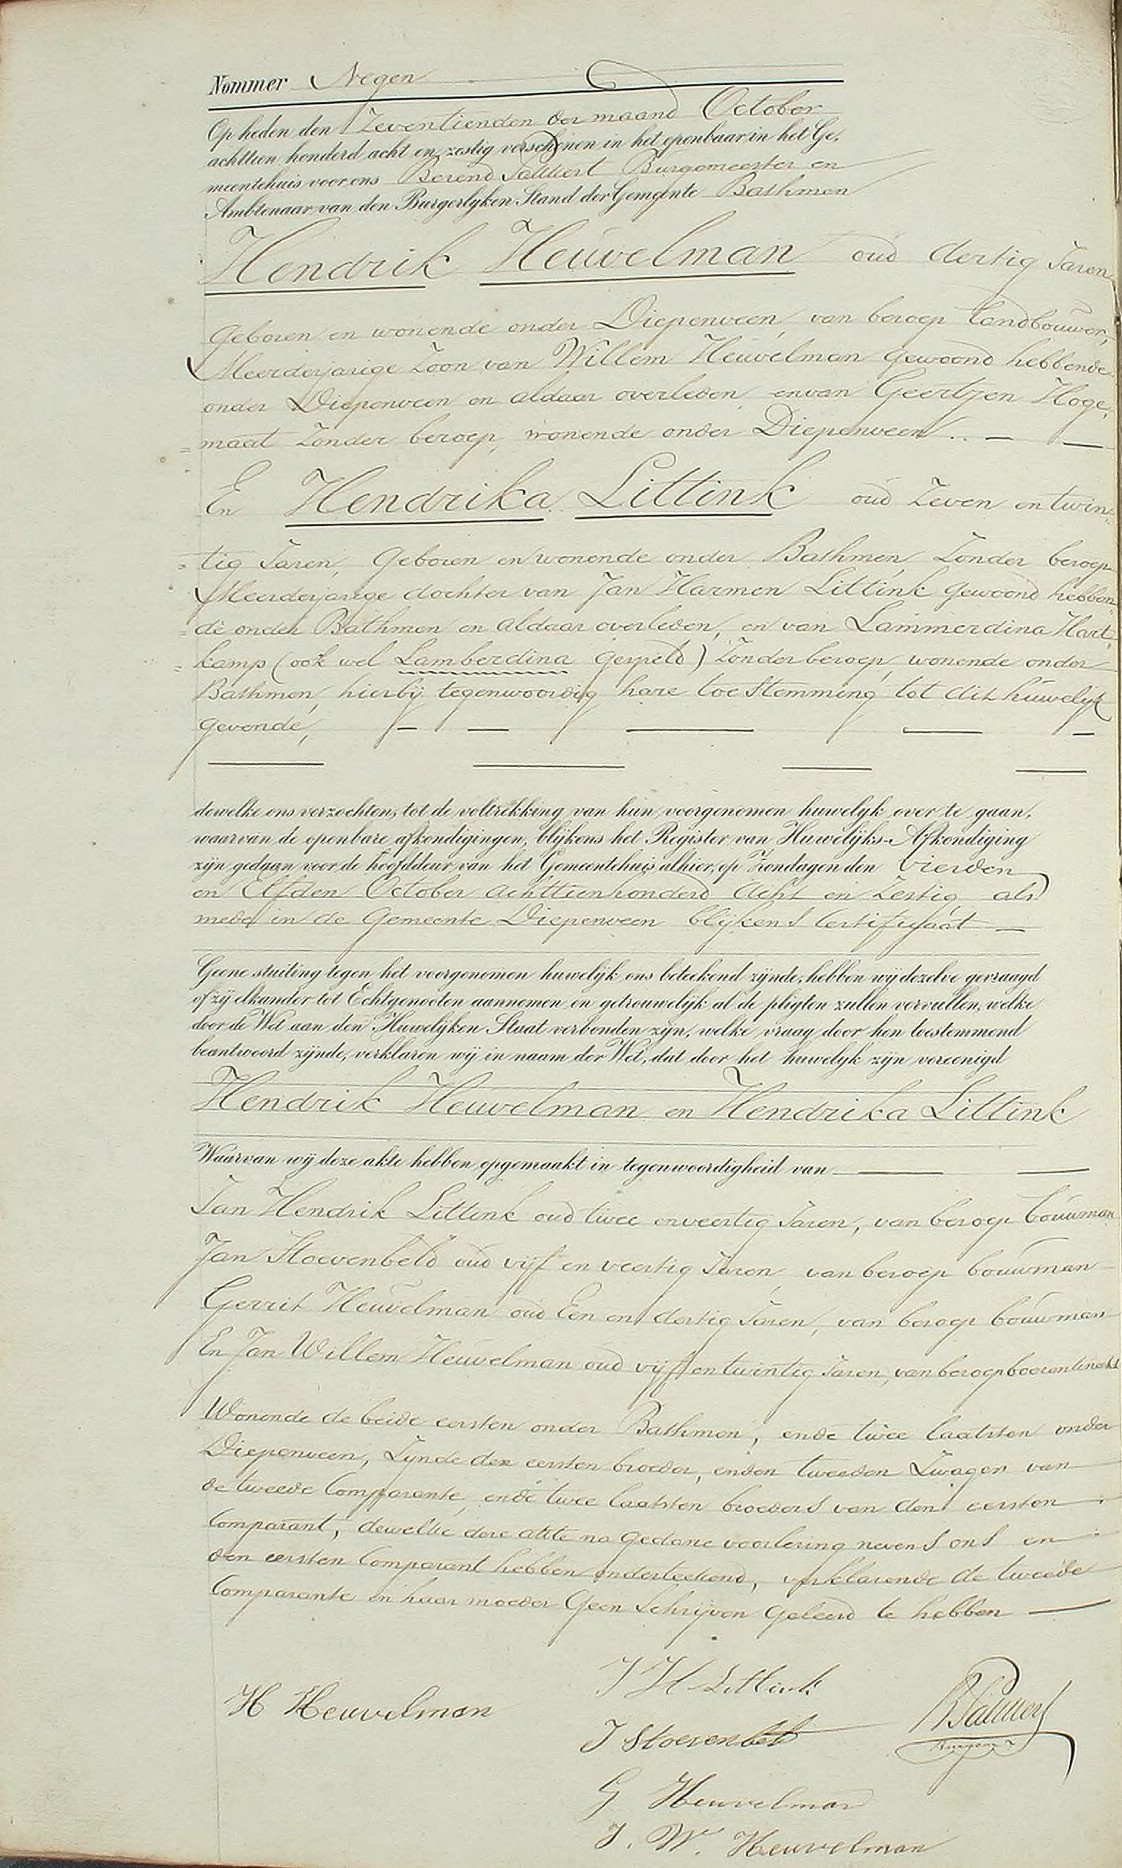 Nommer Negen
Op heden den Zeventienden der maand October
achttien honderd acht en zestig verschenen in het openbaar in het Ge,
meentehuis voor ons Berend Burgemeester en
Ambtenaar van den Burgerlyken Stand der Gemeente Bathmen
Hendrik Heuvelman oud dertig Jaren
geboren en wonende onder Diepenveen, van beroep landbouwer,
Meerderjarige Zoon van Willem Heuvelman gewoond hebbende
onder Diepenveen en aldaar overleden, en van Geertjen Hoge,
= maat Zonder beroep, wonende onder Diepenveen
En Hendrika Littink oud Zeven en twin=
= tig Jaren, Geboren en wonende onder Bathmen, Zonder beroep
Meerderjarige dochter van Jan Harmen Littink gewoond hebben=
= de onder Bathmen en aldaar overleden, en van Lammerdina Hart=
= kamp (ook wel Lamberdina gespeld) Zonder beroep, wonende onder
Bathmen, hierbij tegenwoordig hare toestemming tot dit huwelijk
gevende,
dewelke ons verzochten, tot de voltrekking van hun voorgenomen huwelyk over te gaan,
waarvan de openbare afkondigingen, blijkens het Register van Huwelijks-Afkondiging
zijn gedaan voor de hoofddeur van het Gemeentehuis alhier, op Zondagen den vierden
en Elfden October achttienhonderd Acht en Zestig, als
mede in de Gemeente Diepenveen blijkens Certifikaat
Geene stuiting tegen het voorgenomen huwelijk ons beteekend zijnde, hebben wij dezelve gevraagd
of zij elkander tot Echtgenooten aannemen en getrouwelijk al de pligten zullen vervullen, welke
door de Wet aan den Huwelijken Staat verbonden zijn, welke vraag door hen toestemmend
beantwoord zijnde, verklaren wij in naam der Wet, dat door het huwelijk zijn vereenigd
Hendrik Heuvelman en Hendrika Littink
Waarvan wij deze akte hebben opgemaakt in tegenwoordigheid van
Jan Hendrik Littink oud twee en veertig Jaren, van beroep bouwman
Jan Stoevenbeld oud vijf en veertig Jaren, van beroep bouwman
Gerrit Heuvelman oud Een en dertig Jaren, van beroep bouwman
En Jan Willem Heuvelman oud vijf en twintig Jaren, van beroep boerenknecht
Wonende de beide eersten onder Bathmen, en de twee laatsten onder
Diepenveen, Zijnde den eersten broeder, en den tweeden Zwager van
de tweede Comparante, en de twee laatsten broeders van den eersten
Comparant, dewelke deze akte na gedane voorlezing nevens ons en
den eersten Comparant hebben onderteekend, verklarende de tweede
Comparante en haar moeder Geen Schrijven geleerd te hebben
H Heuvelman
J H Littink
J Stoevenbelt
G Heuvelman
J. W. Heuvelman